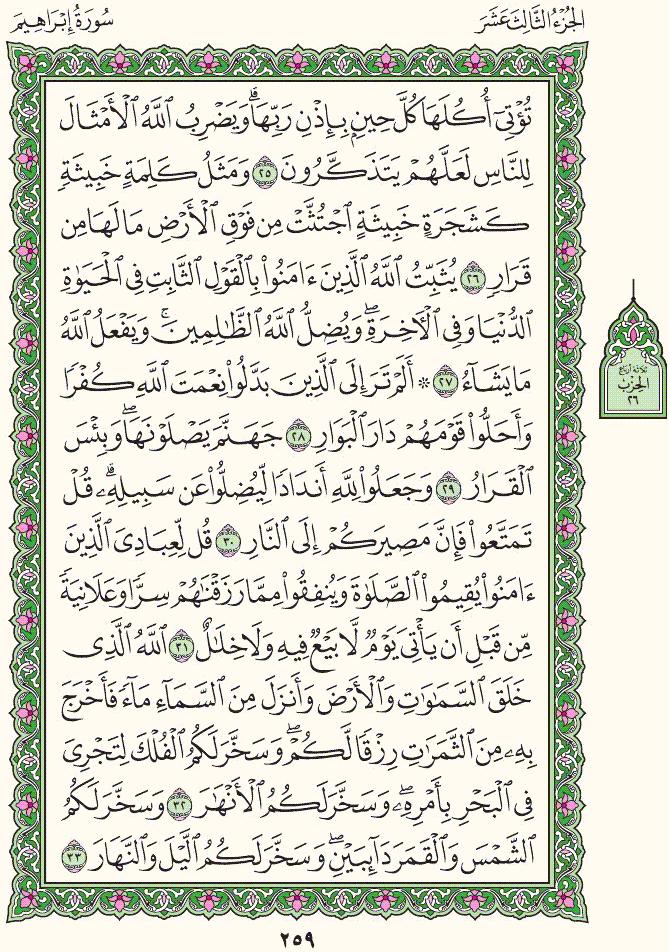 الجُزْءُ الثَّالِثَ عَشَرَ
سُورَةُ إِبْرَاهِيمَ
تُؤْتِىٓ أُكُلَهَا كُلَّ حِينٍۭ بِإِذْنِ رَبِّهَاۗ وَيَضْرِبُ ٱللَّهُ ٱلْأَمْثَالَ
لِلنَّاسِ لَعَلَّهُمْ يَتَذَكَّرُونَ ٢٥ وَمَثَلُ كَلِمَةٍ خَبِيثَةٍ
كَشَجَرَةٍ خَبِيثَةٍ ٱجْتُثَّتْ مِن فَوْقِ ٱلْأَرْضِ مَا لَهَا مِن
قَرَارٍ ٢٦ يُثَبِّتُ ٱللَّهُ ٱلَّذِينَ ءَامَنُوا۟ بِٱلْقَوْلِ ٱلثَّابِتِ فِى ٱلْحَيَوٰةِ
ٱلدُّنْيَا وَفِى ٱلْـَٔاخِرَةِۖ وَيُضِلُّ ٱللَّهُ ٱلظَّـٰلِمِينَۚ وَيَفْعَلُ ٱللَّهُ
مَا يَشَآءُ ٢٧ ۞ أَلَمْ تَرَ إِلَى ٱلَّذِينَ بَدَّلُوا۟ نِعْمَتَ ٱللَّهِ كُفْرًا
وَأَحَلُّوا۟ قَوْمَهُمْ دَارَ ٱلْبَوَارِ ٢٨ جَهَنَّمَ يَصْلَوْنَهَاۖ وَبِئْسَ
ٱلْقَرَارُ ٢٩ وَجَعَلُوا۟ لِلَّهِ أَندَادًا لِّيُضِلُّوا۟ عَن سَبِيلِهِۦۗ قُلْ
تَمَتَّعُوا۟ فَإِنَّ مَصِيرَكُمْ إِلَى ٱلنَّارِ ٣٠ قُل لِّعِبَادِىَ ٱلَّذِينَ
ءَامَنُوا۟ يُقِيمُوا۟ ٱلصَّلَوٰةَ وَيُنفِقُوا۟ مِمَّا رَزَقْنَـٰهُمْ سِرًّا وَعَلَانِيَةً
مِّن قَبْلِ أَن يَأْتِىَ يَوْمٌ لَّا بَيْعٌ فِيهِ وَلَا خِلَـٰلٌ ٣١ ٱللَّهُ ٱلَّذِى
خَلَقَ ٱلسَّمَـٰوَٰتِ وَٱلْأَرْضَ وَأَنزَلَ مِنَ ٱلسَّمَآءِ مَآءً فَأَخْرَجَ
بِهِۦ مِنَ ٱلثَّمَرَٰتِ رِزْقًا لَّكُمْۖ وَسَخَّرَ لَكُمُ ٱلْفُلْكَ لِتَجْرِىَ
فِى ٱلْبَحْرِ بِأَمْرِهِۦۖ وَسَخَّرَ لَكُمُ ٱلْأَنْهَـٰرَ ٣٢ وَسَخَّرَ لَكُمُ
ٱلشَّمْسَ وَٱلْقَمَرَ دَآئِبَيْنِۖ وَسَخَّرَ لَكُمُ ٱلَّيْلَ وَٱلنَّهَارَ ٣٣
ثلاثة أرباع
الحزب
٢٦
٢٥٩